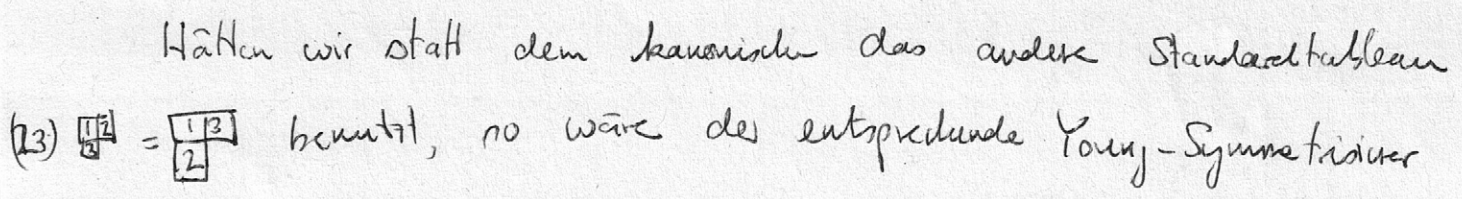 Hätten wir statt dem kanonischen das andere Standardtableau
(23) 1 2 3 = 1 3 2 benutzt, so wäre der entsprechende Young-Symmetrisierer